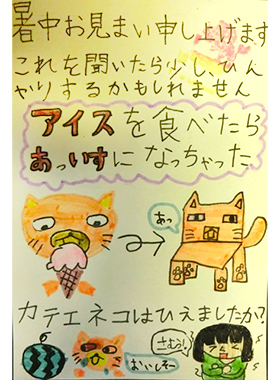 暑中お見まい申し上げます
これを聞いたら少し、ひん
やりするかもしれません
アイスを食べたら
あっいすになっちゃった
あっ
カテエネコはひえましたか?
おいしそー
さむらい